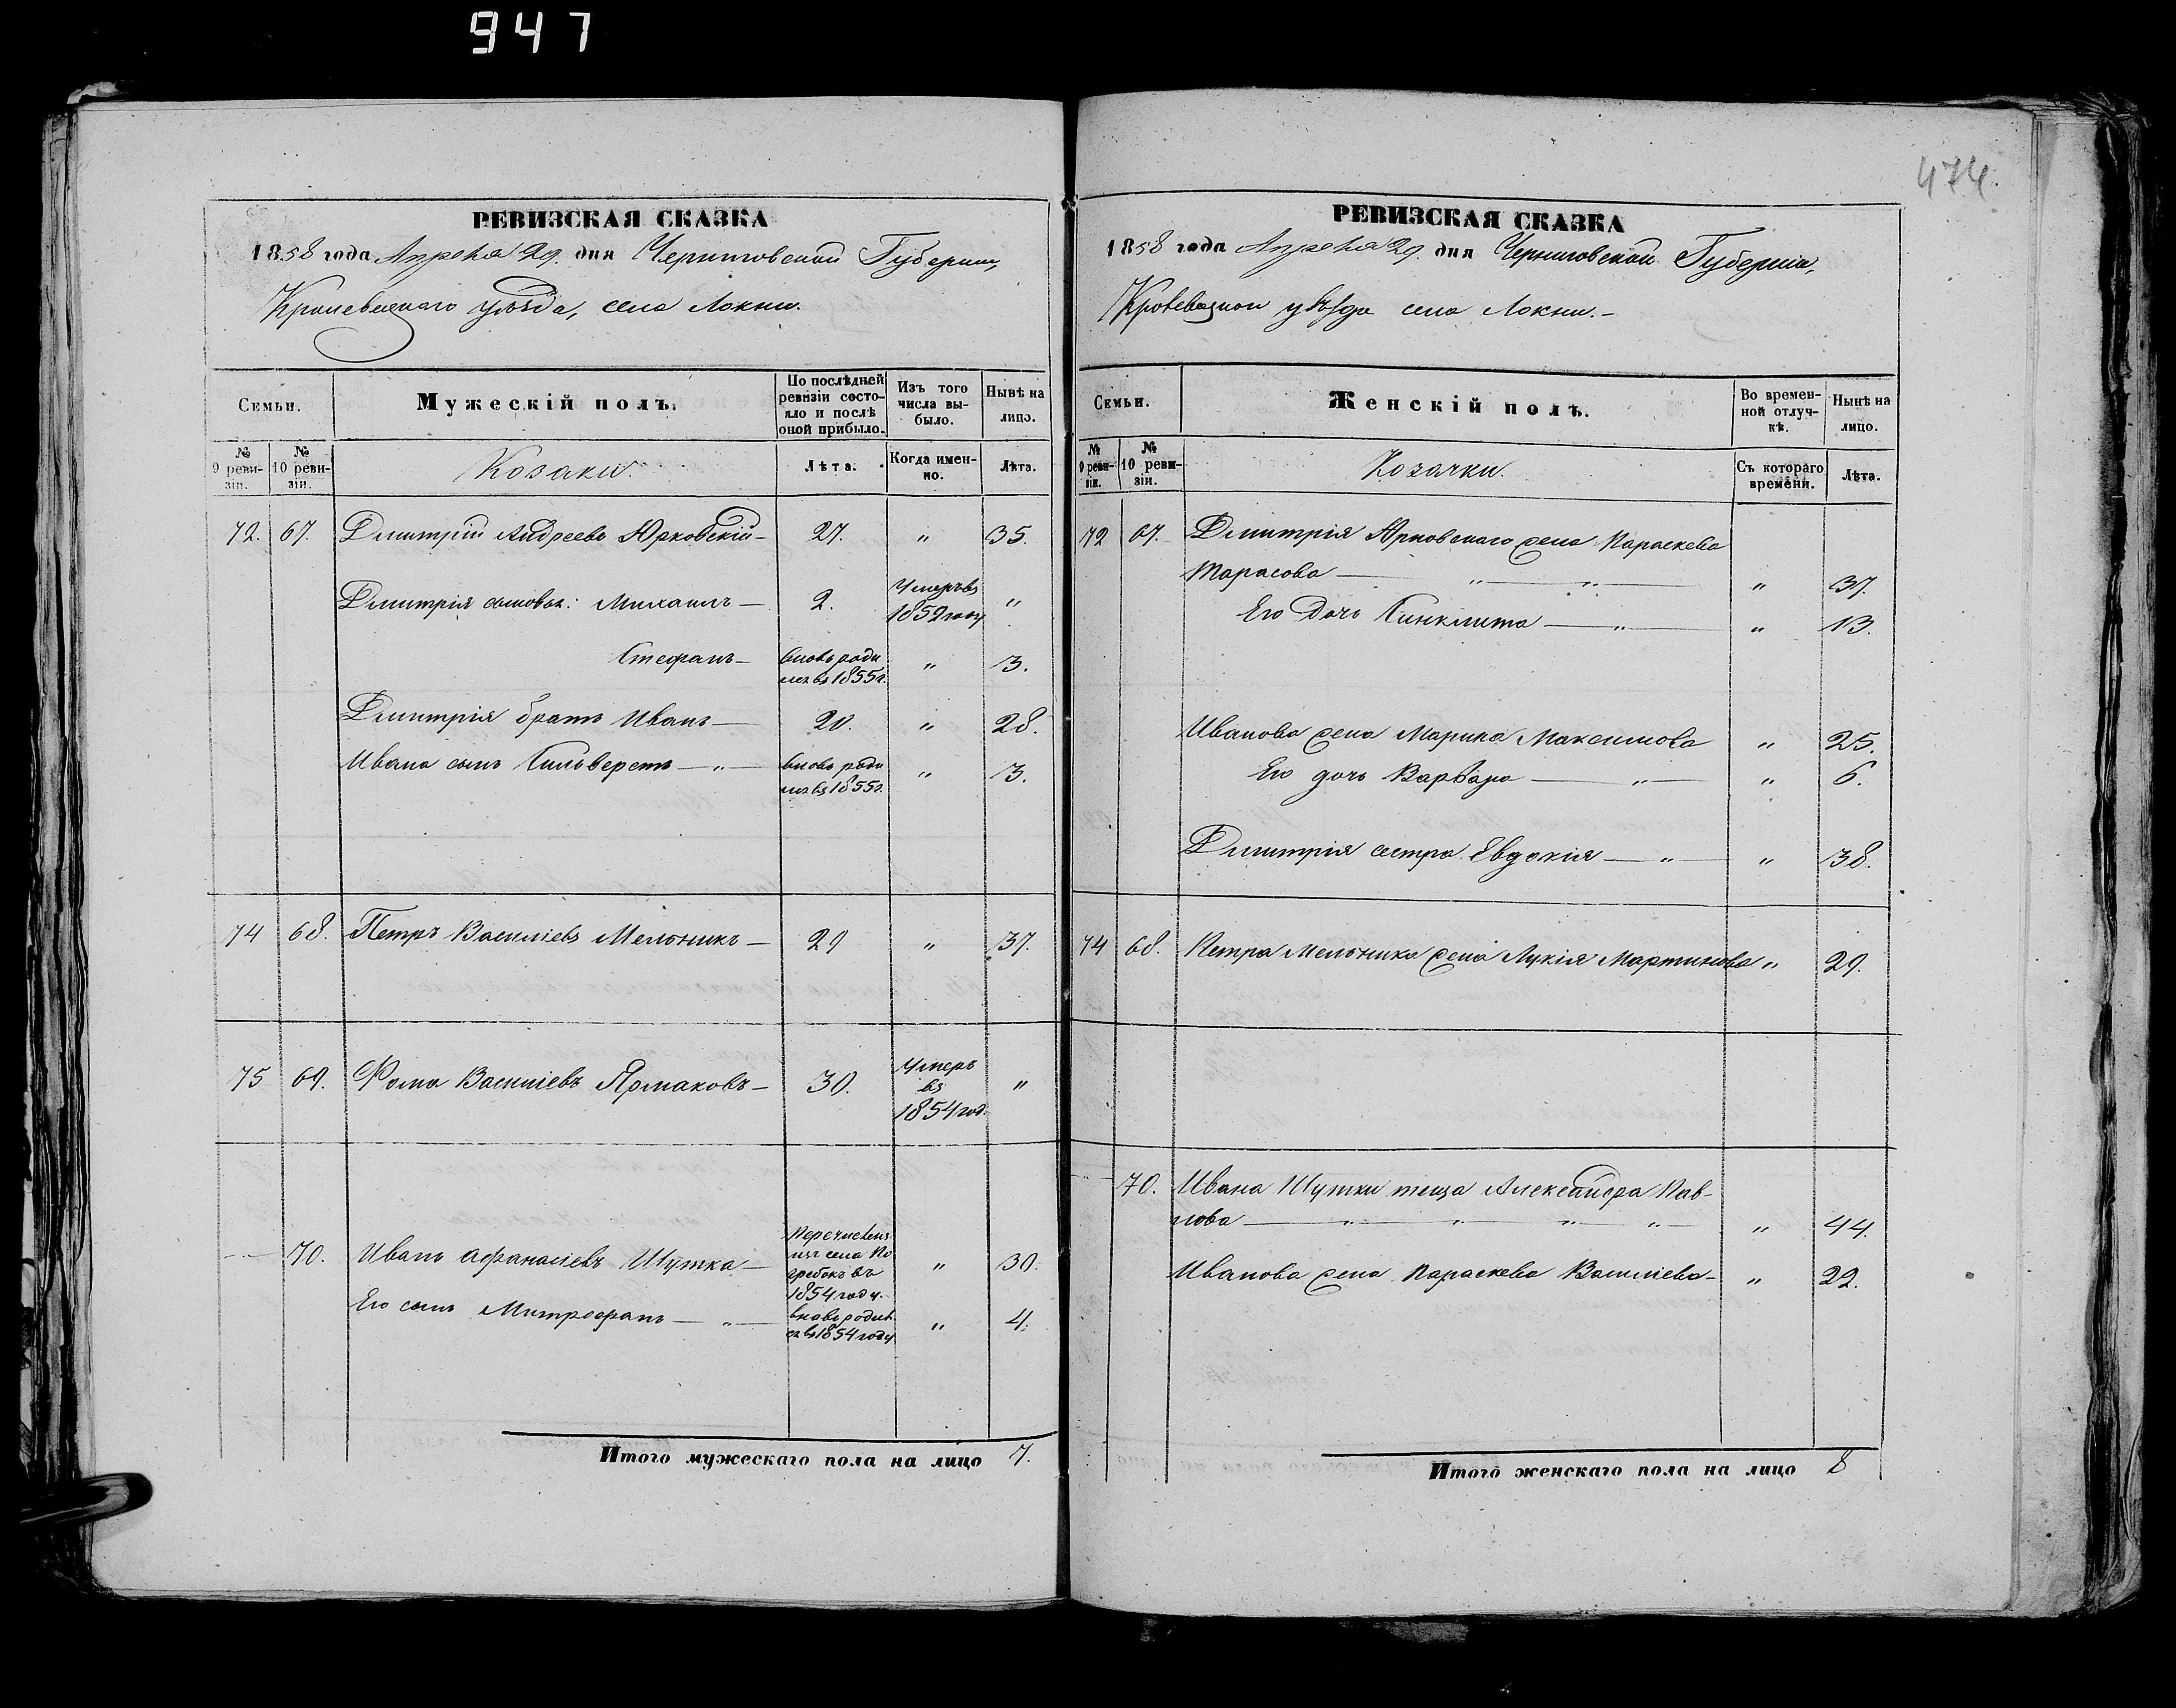 947
474.
РЕВИЗСКАЯ СКАЗКА
1858 года Апреля 29. дня Черниговской Губернии,
Кролевецкого уѣзда, села Локни.
Семьи.
Мужескій полъ.
По послѣдней ревизіи состояло и послѣ оной прибыло.
Изъ того числа выбыло.
Нынѣ на лицо.
№ 9 ревизіи.
№ 10 ревизіи.
Козаки.
Лѣта.
Когда именно.
Лѣта.
72. 67. Дмитрій Андреевъ Юрковскій — 27. " 35.
Дмитрія сыновья: Михаилъ — 2. Умеръ въ 1852 году "
Стефанъ — вновь родился въ 1855 г. " 3.
Дмитрія братъ Иванъ — 20. " 28.
Ивана сынъ Сильверстъ — " — вновь родился въ 1855 г. " 3.
74 68. Петръ Василіевъ Мельникъ — 29 " 37.
75 69. Фома Василіевъ Ярмаковъ — 30. Умеръ въ 1854 год. "
— 70. Иванъ Афанасіевъ Шутка — Перечисленъ изъ села Погребокъ въ 1854 году. " 30.
Его сынъ Митрофанъ — " — вновь родился въ 1854 году " 4.
Итого мужескаго пола на лицо 7.
РЕВИЗСКАЯ СКАЗКА
1858 года Апреля 29. дня Черниговской Губерніи,
уѣзда села Локни. —
Семьи.
Женскій полъ.
Во временной отлучкѣ.
Нынѣ на лицо.
№ 9 ревизіи.
№ 10 ревизіи.
Козачки.
Съ котораго времени.
Лѣта.
72 67. Дмитрія Юрковскаго жена Параскева
Тарасова — " — " — " 37.
Его дочь Синклита — " — " 13.
Иванова жена Марина Максимова " 25.
Его дочь Варвара — " — " 6.
Дмитрія сестра Евдокія — " — " 38.
74 68. Петра Мельника жена Лукія Мартинова " 29.
70. Ивана Шутки теща Александра Пав-
лова — " — " — " — " — " 44.
Иванова жена Параскева Василіева — " 22.
Итого женскаго пола на лицо 8